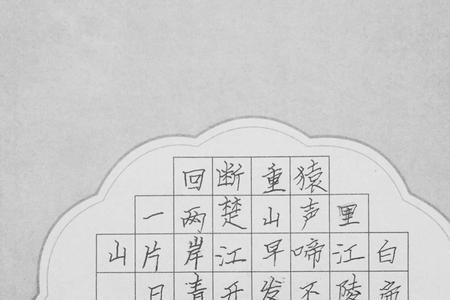 白帝
里江陵
猿声啼不
重山早发
断楚江开
回两岸青
一片日
山